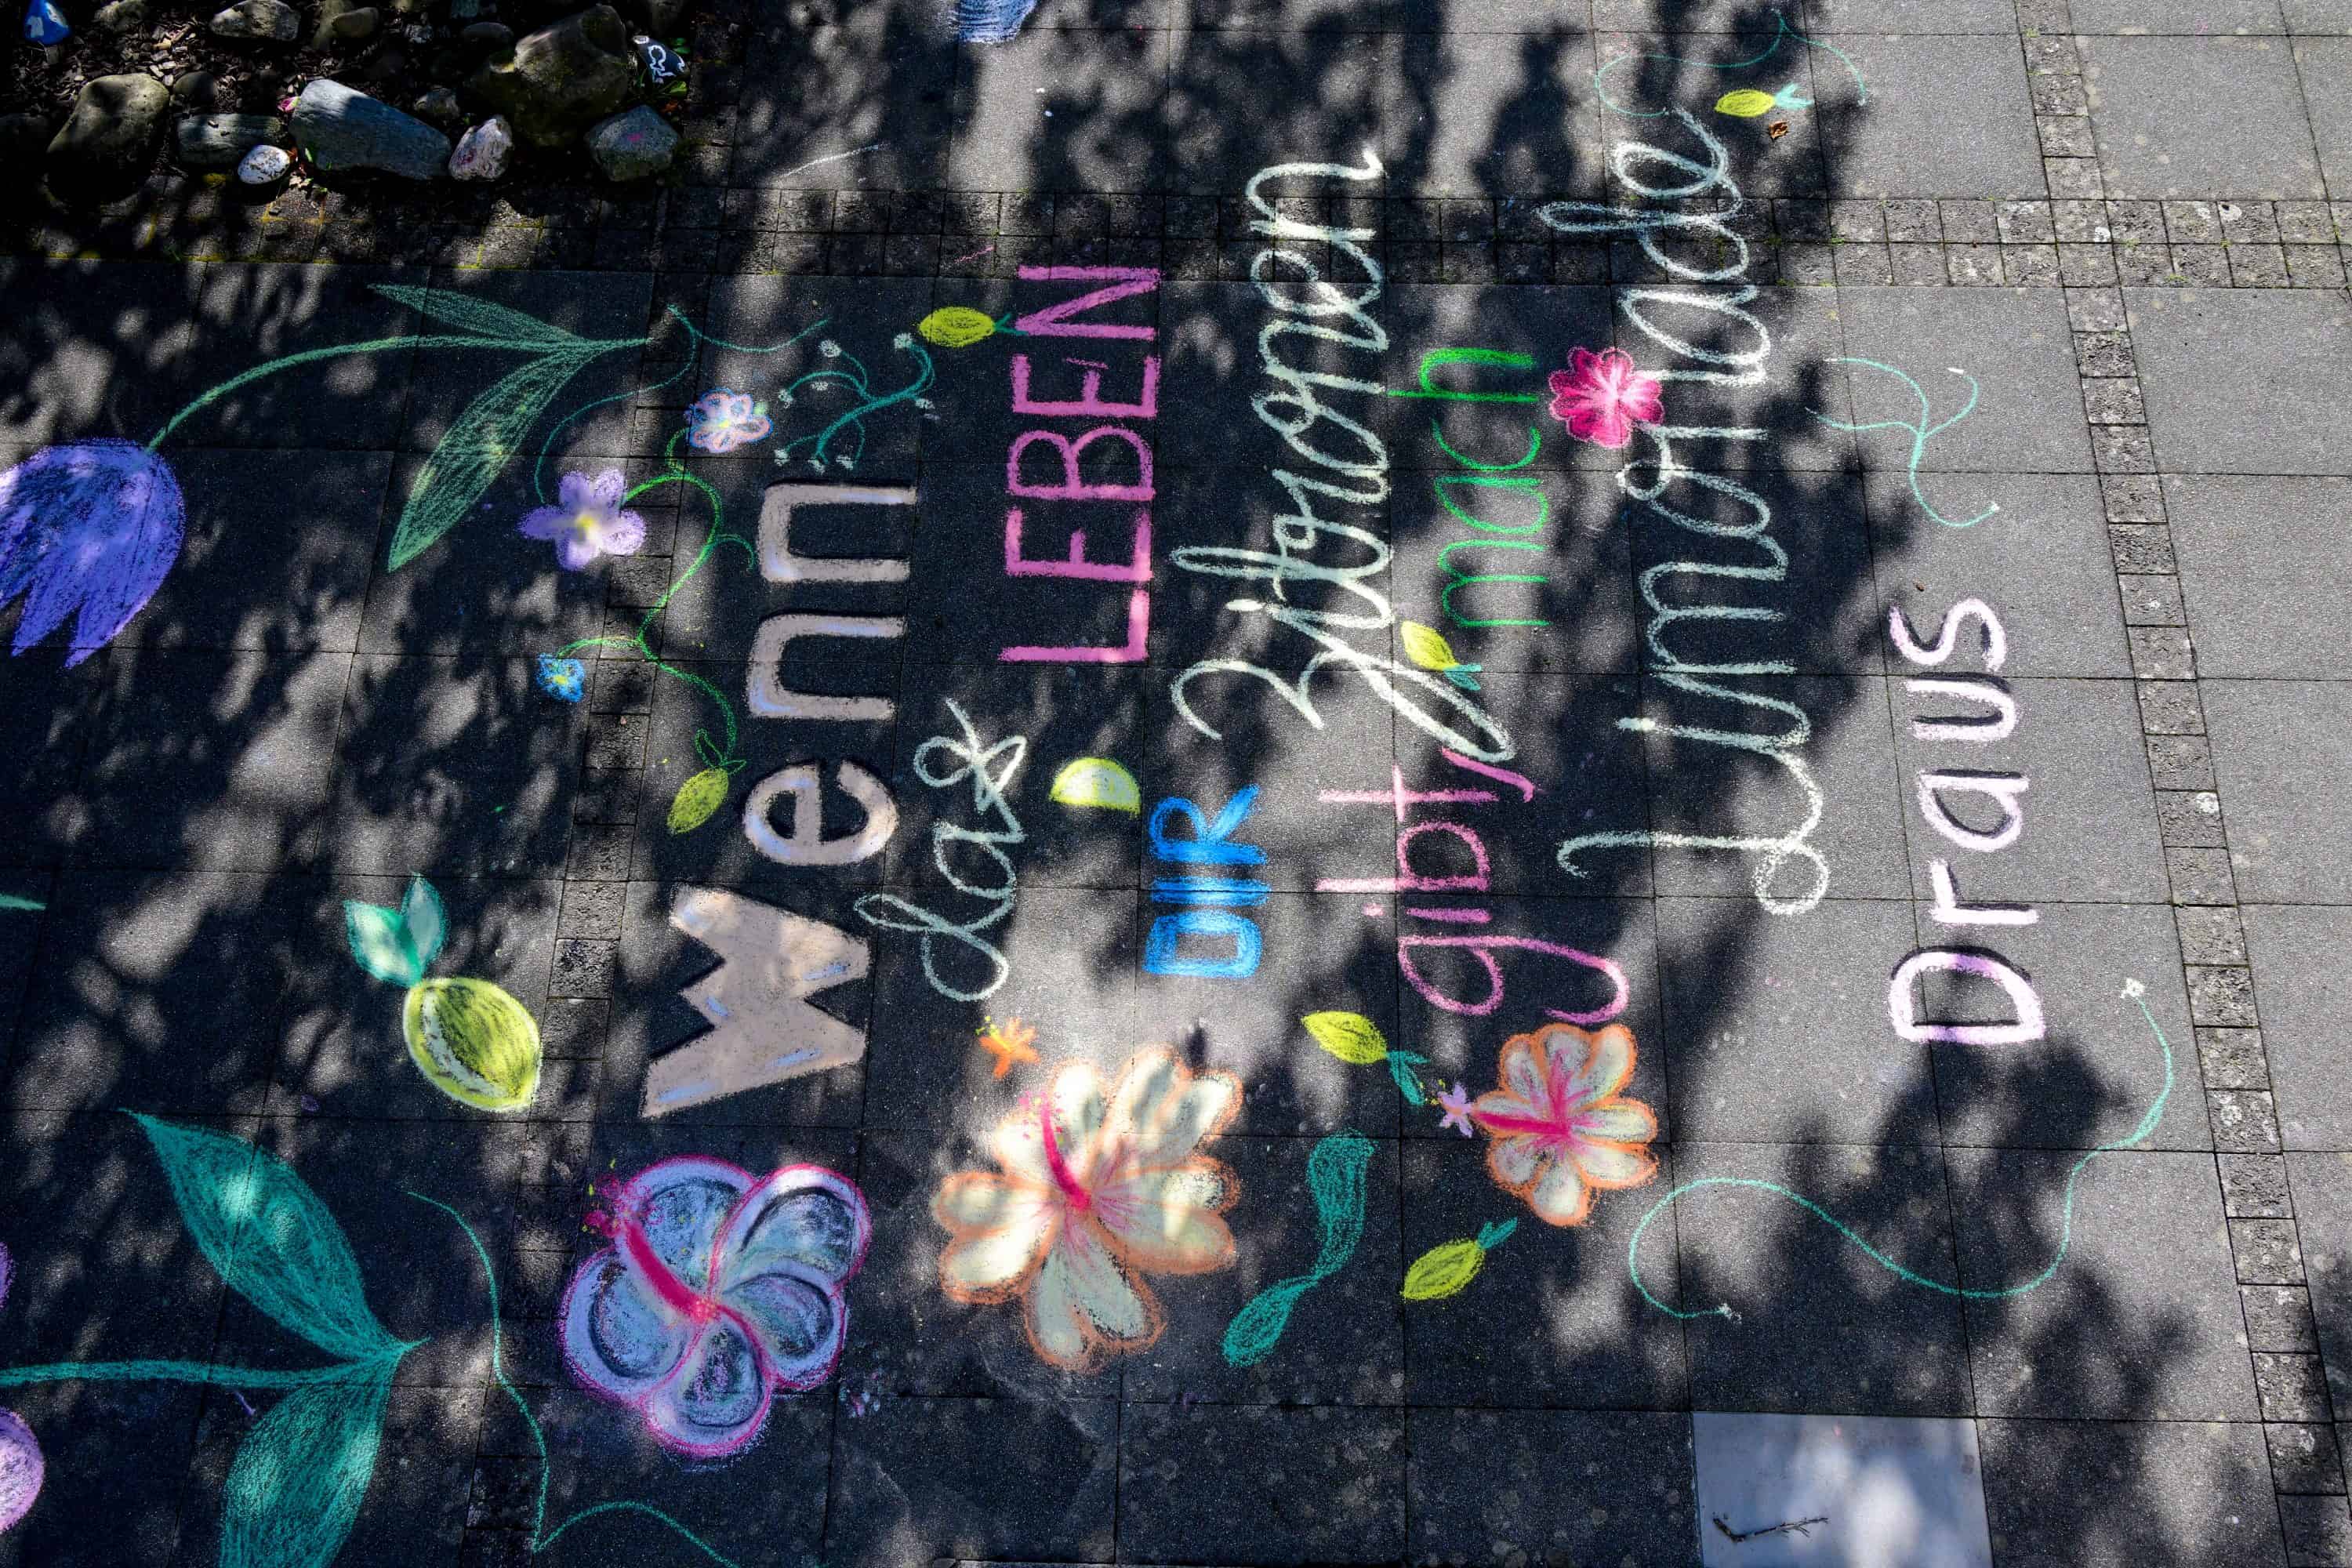 Wenn
das LEBEN
DIR Zitronen
gibt, mach
Limonade
Draus